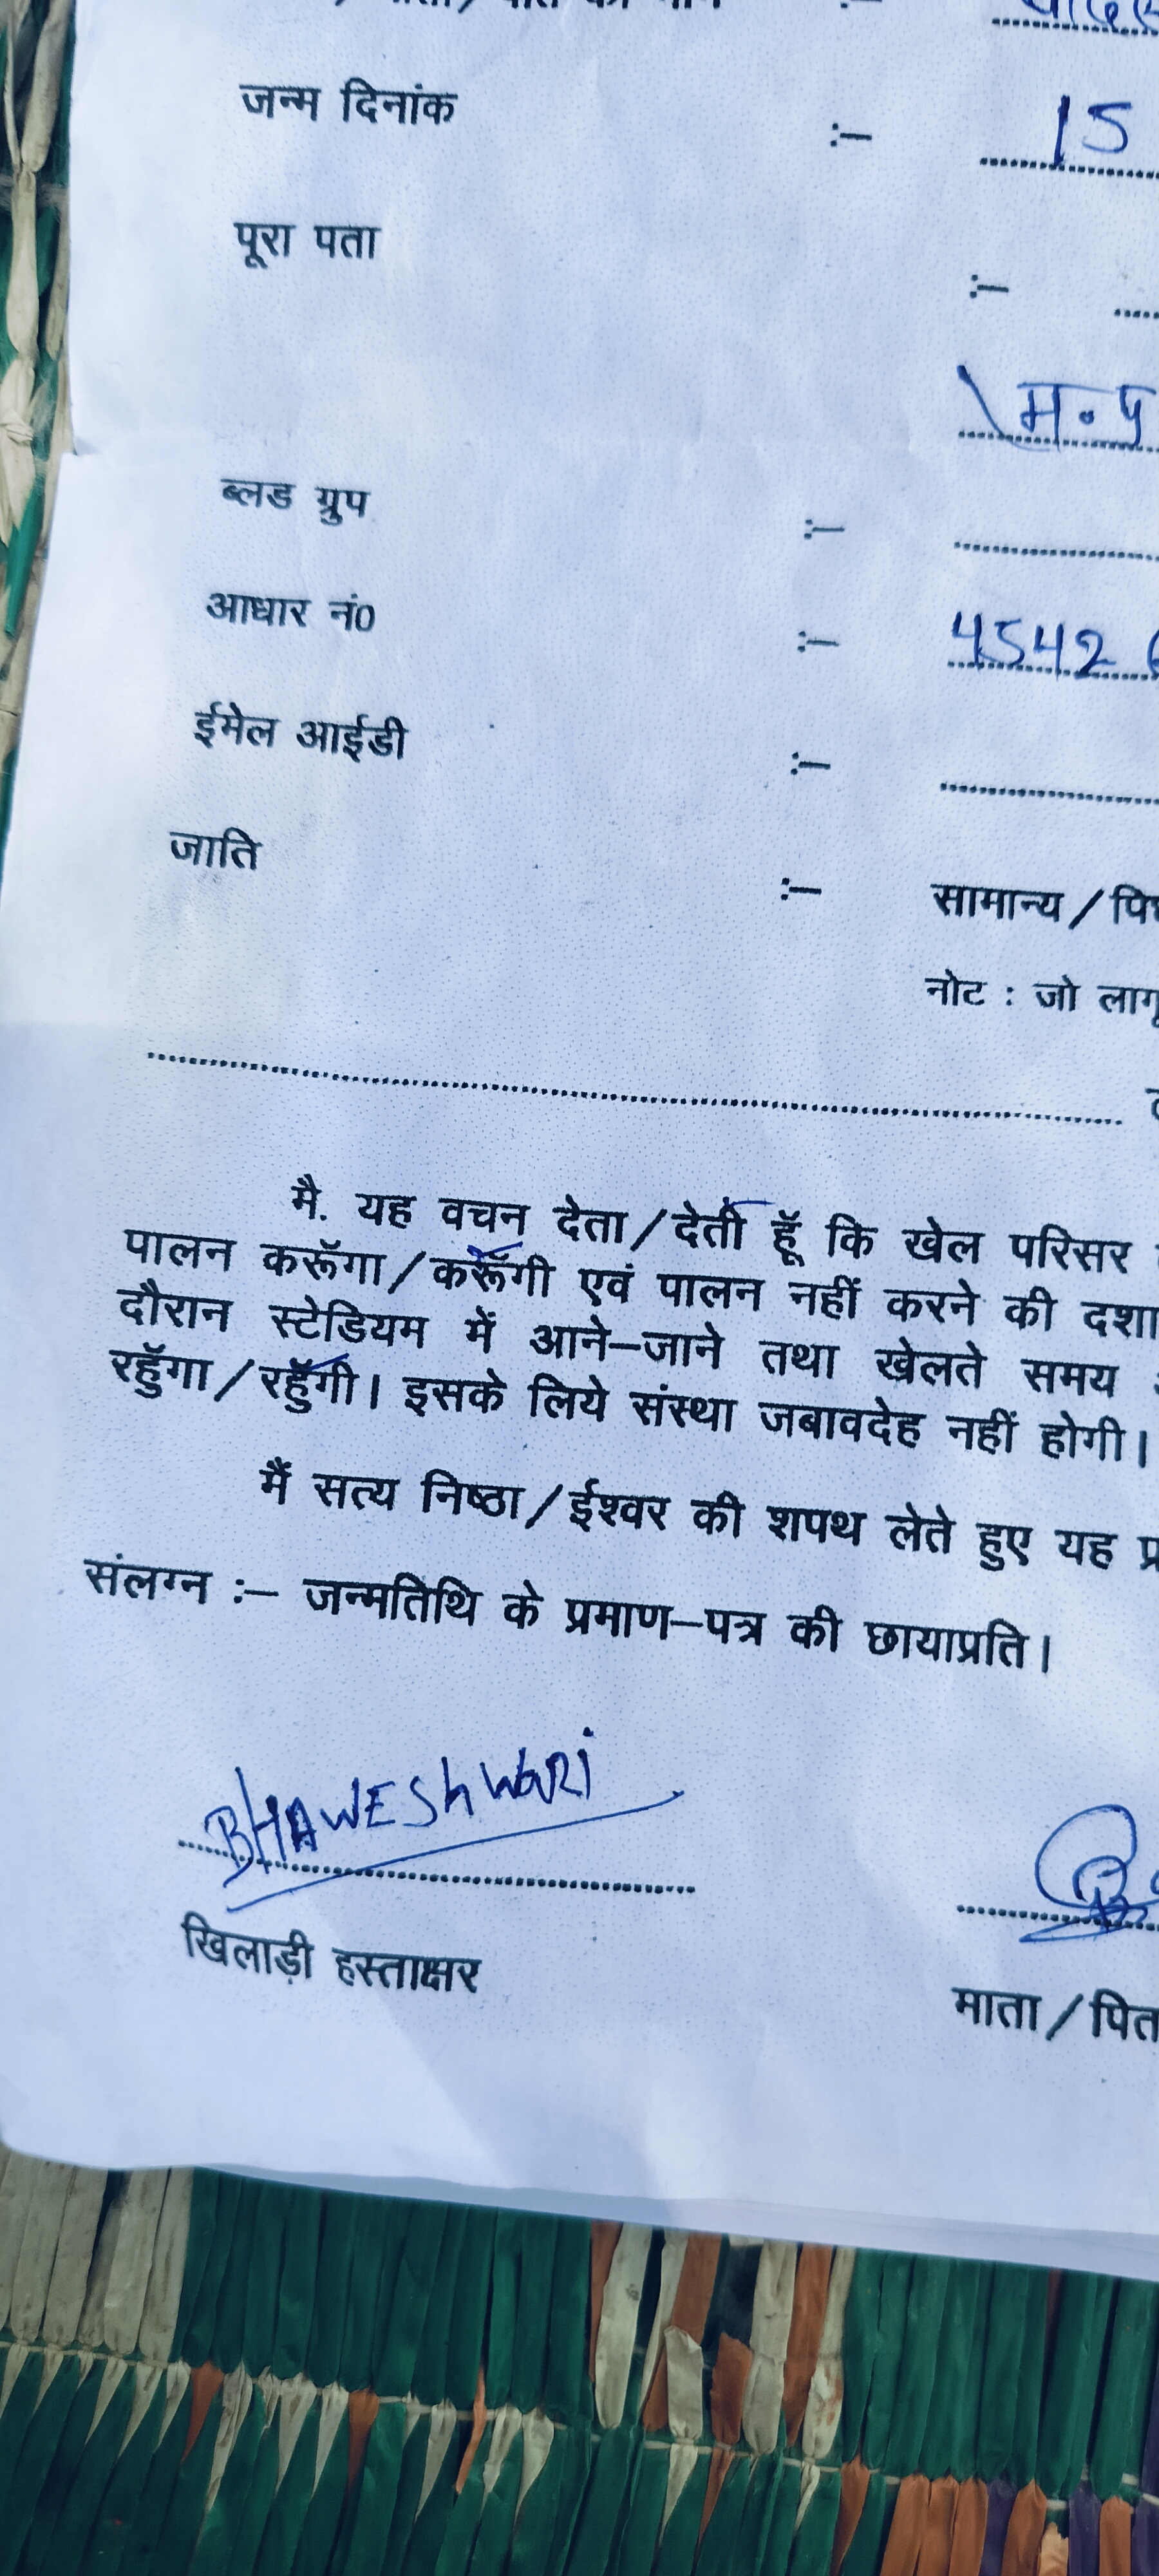 जन्म दिनांक :– 15
पूरा पता :–
म.प्र
ब्लड ग्रुप :–
आधार नं0 :– 4542
ईमेल आईडी :–
जाति :– सामान्य/
नोट : जो लागू
मै. यह वचन देता/देती हूॅ कि खेल परिसर
पालन करूॅगा/करूॅगी एवं पालन नहीं करने की दशा
दौरान स्टेडियम में आने–जाने तथा खेलते समय
रहूॅगा/रहूॅगी। इसके लिये संस्था जबावदेह नहीं होगी।
मैं सत्य निष्ठा/ईश्वर की शपथ लेते हुए यह
संलग्न :– जन्मतिथि के प्रमाण–पत्र की छायाप्रति।
BHAWESHWARI
खिलाड़ी हस्ताक्षर
माता/